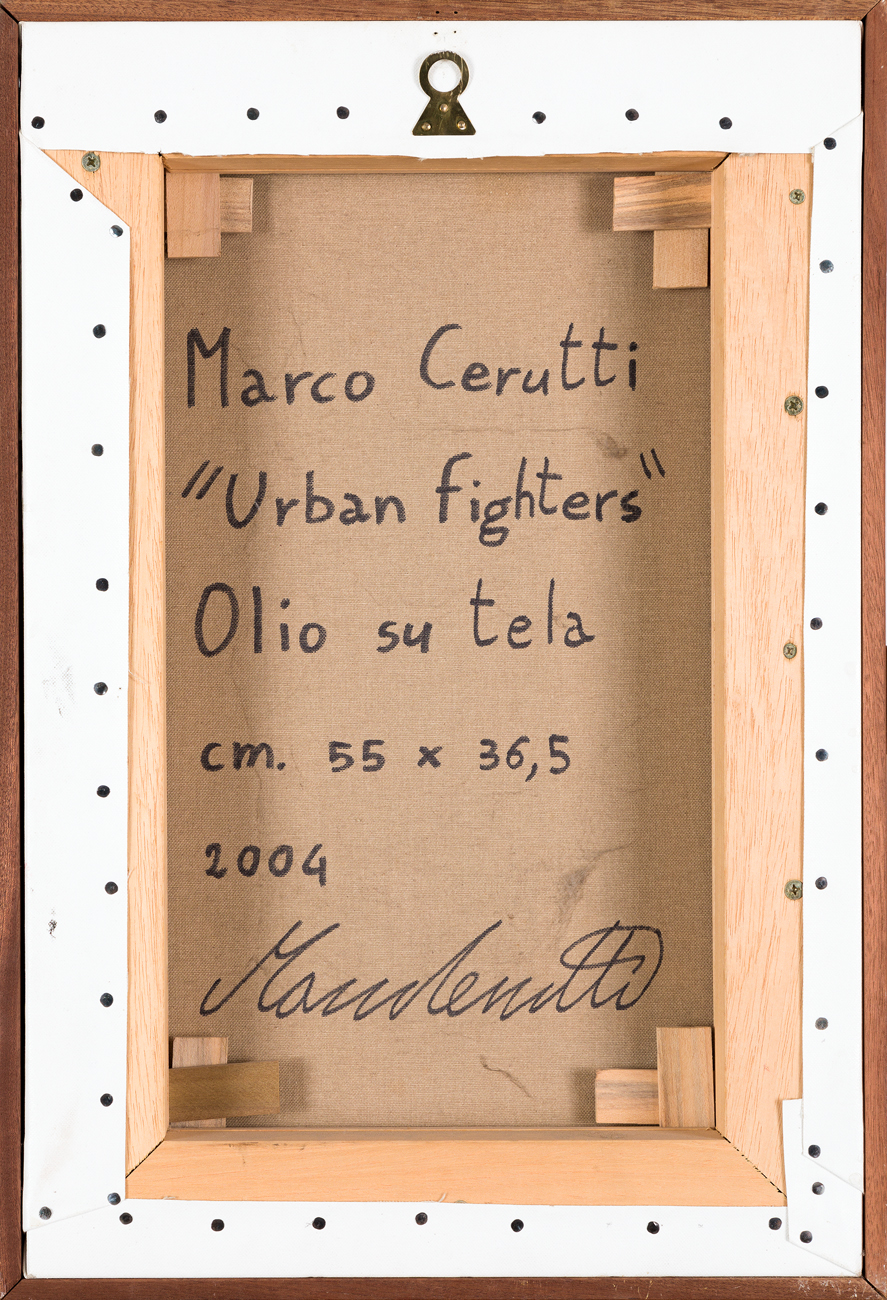 Marco Cerutti
"Urban fighters"
Olio su tela
cm. 55 x 36,5
2004
Marco Cerutti